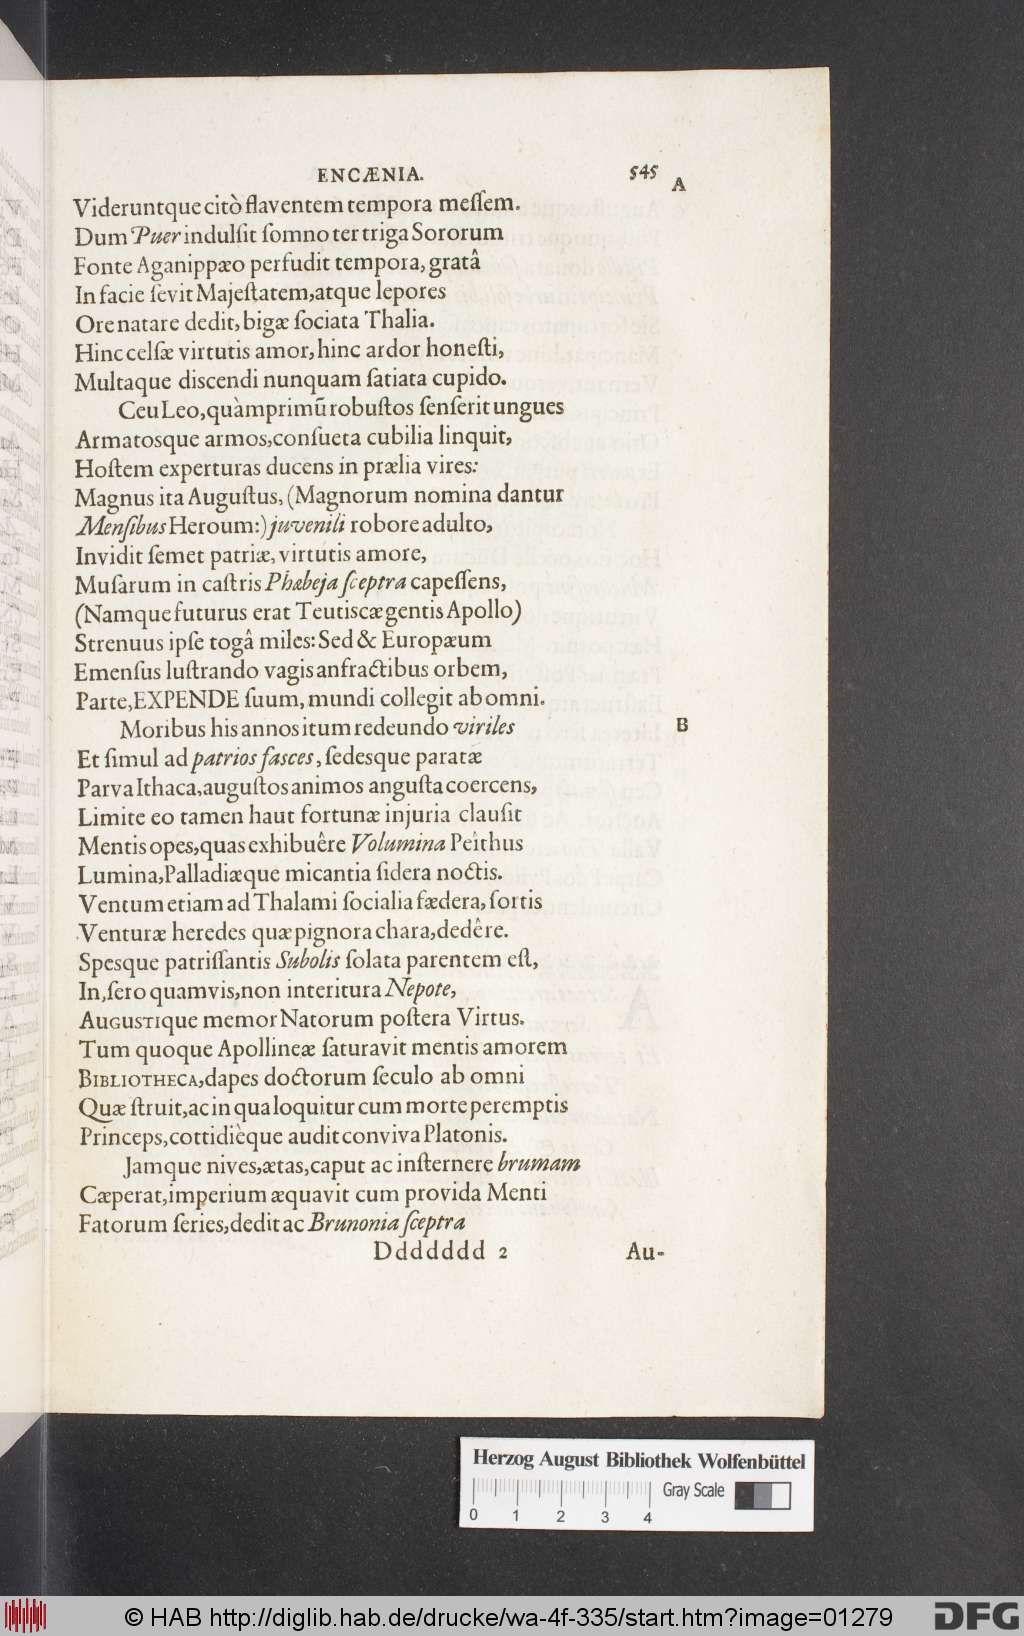 ENCÆNIA. 545
A
Videruntque citò flaventem tempora meſſem.
Dum Puer indulſit ſomno ter triga Sororum
Fonte Aganippæo perfudit tempora, gratâ
In facie ſevit Majeſtatem, atque lepores
Ore natare dedit, bigæ ſociata Thalia.
Hinc celſæ virtutis amor, hinc ardor honeſti,
Multaque discendi nunquam ſatiata cupido.
Ceu Leo, quàmprimū robuſtos ſenſerit ungues
Armatosque armos, conſueta cubilia linquit,
Hoſtem experturas ducens in prælia vires:
Magnus ita Auguſtus, (Magnorum nomina dantur
Menſibus Heroum:) juvenili robore adulto,
Invidit ſemet patriæ, virtutis amore,
Muſarum in caſtris Phæbeja ſceptra capeſſens,
(Namque futurus erat Teutiscæ gentis Apollo)
Strenuus ipſe togâ miles: Sed & Europæum
Emenſus luſtrando vagis anfractibus orbem,
Parte, EXPENDE ſuum, mundi collegit ab omni.
Moribus his annos itum redeundo viriles
B
Et ſimul ad patrios faſces, ſedesque paratæ
Parva Ithaca, auguſtos animos anguſta coercens,
Limite eo tamen haut fortunæ injuria clauſit
Mentis opes, quas exhibuêre Volumina Peîthus
Lumina, Palladiæque micantia ſidera noctis.
Ventum etiam ad Thalami ſocialia fædera, ſortis
Venturæ heredes quæ pignora chara, dedêre.
Spesque patriſſantis Subolis ſolata parentem eſt,
In, ſero quamvis, non interitura Nepote,
AUGUSTIque memor Natorum poſtera Virtus.
Tum quoque Apollineæ ſaturavit mentis amorem
BIBLIOTHECA, dapes doctorum ſeculo ab omni
Quæ ſtruit, ac in qua loquitur cum morte peremptis
Princeps, cottidièque audit conviva Platonis.
Jamque nives, ætas, caput ac inſternere brumam
Cæperat, imperium æquavit cum provida Menti
Fatorum ſeries, dedit ac Brunonia ſceptra
Ddddddd 2 Au-
Herzog August Bibliothek Wolfenbüttel
Gray Scale
0 1 2 3 4
© HAB http://diglib.hab.de/drucke/wa-4f-335/start.htm?image=01279
DFG